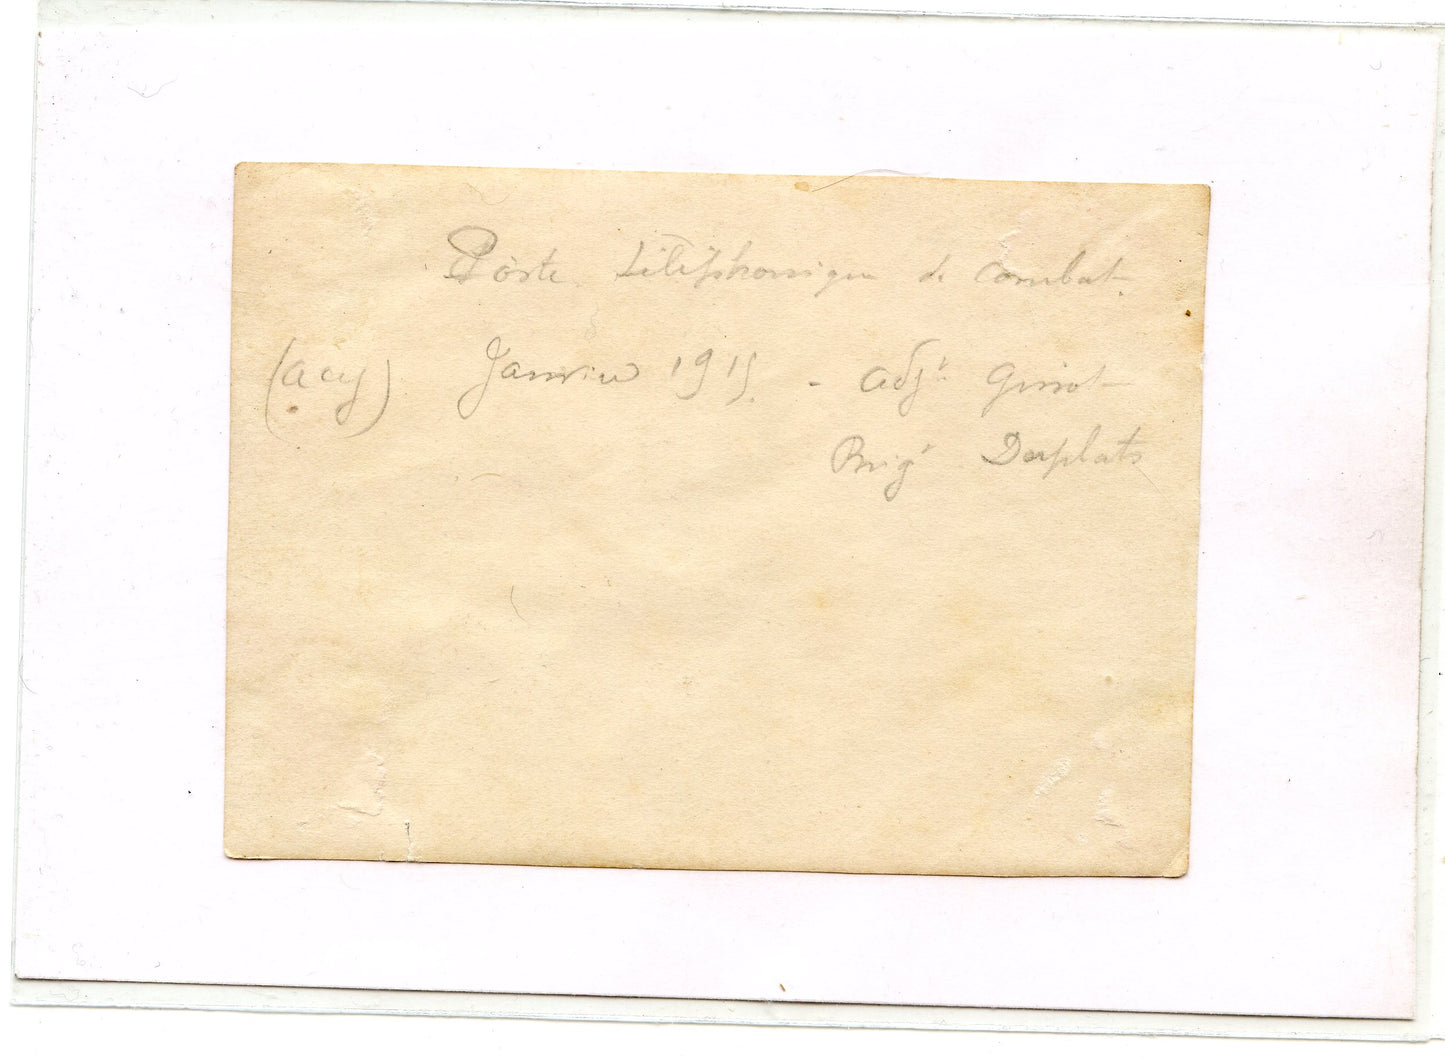 Poste téléphonique de combat.
(Acy) Janvier 1915. - Adjt Guiot
Brigr Desplats